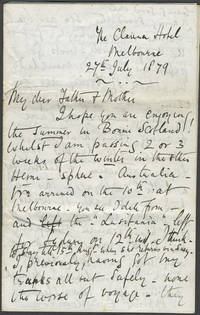 The Clarina Hotel
Melbourne
27th July 1879
My dear Father & Mother
I hope you are enjoying
the Summer in Bonnie Scotland!!
whilst I am passing 2 or 3
weeks of the winter in the other
Hemi-sphere. Australia -
We arrived on the 10th at
Melbourne
and left the "Lusitania" left
for Sydney on 12th
previously, having got my
trunks all out safely - none
the worse of voyage - they